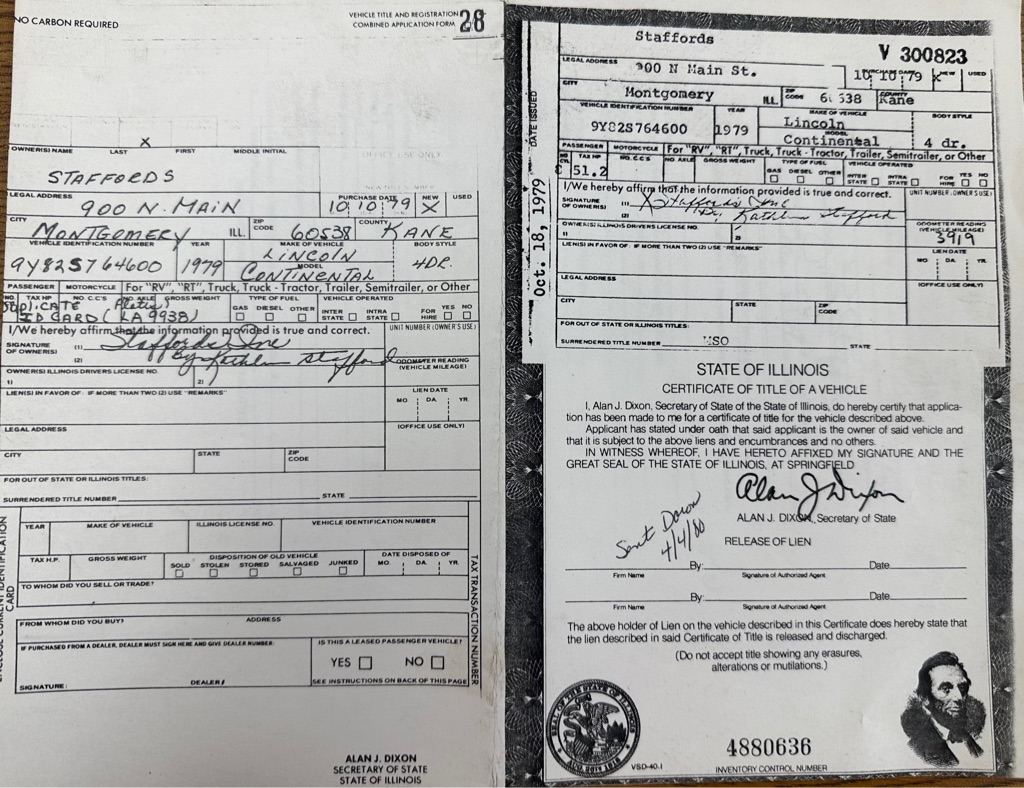 NO CARBON REQUIRED
VEHICLE TITLE AND REGISTRATION
COMBINED APPLICATION FORM
28
X
OWNER(S) NAME LAST FIRST MIDDLE INITIAL
OFFICE USE ONLY
STAFFORDS
LEGAL ADDRESS PURCHASE DATE NEW USED
900 N. MAIN 10 10 79 X
CITY ILL. ZIP CODE COUNTY
MONTGOMERY 60538 KANE
VEHICLE IDENTIFICATION NUMBER YEAR MAKE OF VEHICLE BODY STYLE
LINCOLN
MODEL
9Y82S764600 1979 CONTINENTAL 4DR.
PASSENGER MOTORCYCLE For "RV", "RT", Truck, Truck - Tractor, Trailer, Semitrailer, or Other
NO. TAX HP NO. C.C'S NO. AXLE GROSS WEIGHT TYPE OF FUEL VEHICLE OPERATED
GAS DIESEL OTHER INTER STATE INTRA STATE FOR HIRE YES NO
ID CARD (KA 9938)
I/We hereby affirm that the information provided is true and correct. UNIT NUMBER (OWNER'S USE)
SIGNATURE OF OWNER(S) (1) Staffords Inc
(2) By Kathleen Stafford
ODOMETER READING (VEHICLE MILEAGE)
OWNER(S) ILLINOIS DRIVERS LICENSE NO.
1) 2)
LIEN(S) IN FAVOR OF: IF MORE THAN TWO (2) USE "REMARKS" LIEN DATE
MO. DA. YR.
LEGAL ADDRESS (OFFICE USE ONLY)
CITY STATE ZIP CODE
FOR OUT OF STATE OR ILLINOIS TITLES:
SURRENDERED TITLE NUMBER STATE
YEAR MAKE OF VEHICLE ILLINOIS LICENSE NO. VEHICLE IDENTIFICATION NUMBER
TAX H.P. GROSS WEIGHT DISPOSITION OF OLD VEHICLE DATE DISPOSED OF
SOLD STOLEN STORED SALVAGED JUNKED MO. DA. YR.
TO WHOM DID YOU SELL OR TRADE?
FROM WHOM DID YOU BUY? ADDRESS
IF PURCHASED FROM A DEALER, DEALER MUST SIGN HERE AND GIVE DEALER NUMBER. IS THIS A LEASED PASSENGER VEHICLE?
YES NO
SIGNATURE: DEALER# SEE INSTRUCTIONS ON BACK OF THIS PAGE
CURRENT IDENTIFICATION CARD
TAX TRANSACTION NUMBER
ALAN J. DIXON
SECRETARY OF STATE
STATE OF ILLINOIS
Staffords
V 300823
LEGAL ADDRESS PURCHASE DATE NEW USED
900 N Main St. 10 10 79 X
CITY ILL. ZIP CODE COUNTY
Montgomery 60538 Kane
VEHICLE IDENTIFICATION NUMBER YEAR MAKE OF VEHICLE BODY STYLE
Lincoln
MODEL
9Y82S764600 1979 Continental 4 dr.
PASSENGER MOTORCYCLE For "RV", "RT", Truck, Truck - Tractor, Trailer, Semitrailer, or Other
TAX HP NO. C.C'S NO. AXLE GROSS WEIGHT TYPE OF FUEL VEHICLE OPERATED
51.2 GAS DIESEL OTHER INTER STATE INTRA STATE FOR HIRE YES NO
I/We hereby affirm that the information provided is true and correct. UNIT NUMBER (OWNER'S USE)
SIGNATURE OF OWNER(S) (1) X Staffords Inc
(2) By Kathleen Stafford
ODOMETER READING (VEHICLE MILEAGE)
3919
OWNER(S) ILLINOIS DRIVERS LICENSE NO.
1) 2)
LIEN(S) IN FAVOR OF: IF MORE THAN TWO (2) USE "REMARKS" LIEN DATE
MO. DA. YR.
LEGAL ADDRESS (OFFICE USE ONLY)
CITY STATE ZIP CODE
FOR OUT OF STATE OR ILLINOIS TITLES:
SURRENDERED TITLE NUMBER MSO STATE
DATE ISSUED
Oct. 18, 1979
STATE OF ILLINOIS
CERTIFICATE OF TITLE OF A VEHICLE
I, Alan J. Dixon, Secretary of State of the State of Illinois, do hereby certify that applica-
tion has been made to me for a certificate of title for the vehicle described above.
Applicant has stated under oath that said applicant is the owner of said vehicle and
that it is subject to the above liens and encumbrances and no others.
IN WITNESS WHEREOF, I HAVE HERETO AFFIXED MY SIGNATURE AND THE
GREAT SEAL OF THE STATE OF ILLINOIS, AT SPRINGFIELD.
Alan J Dixon
ALAN J. DIXON, Secretary of State
4/4/80
RELEASE OF LIEN
By: Date
Firm Name Signature of Authorized Agent
By: Date
Firm Name Signature of Authorized Agent
The above holder of Lien on the vehicle described in this Certificate does hereby state that
the lien described in said Certificate of Title is released and discharged.
(Do not accept title showing any erasures,
alterations or mutilations.)
SEAL OF THE STATE OF ILLINOIS
AUG. 26TH 1818
4880636
VSD-40.1 INVENTORY CONTROL NUMBER